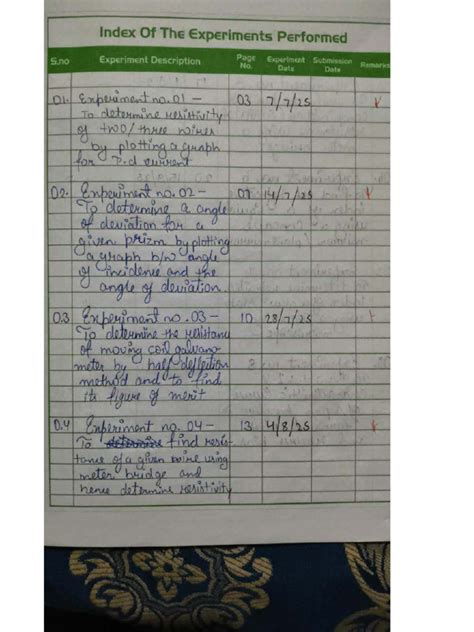 Index Of The Experiments Performed
S.no Experiment Description Page No. Experiment Date Submission Date Remarks
01. Experiment no. 01 – 03 7/7/25
To determine resistivity
of two/three wires
by plotting a graph
for P.d current
02. Experiment no. 02 – 07 14/7/25
To determine a angle
of deviation for a
given prizm by plotting
a graph b/w angle
of incidence and the
angle of deviation.
0.3 Experiment no. 03 – 10 28/7/25
To determine the resistance
of moving coil galvano-
meter by half deflection
method and to find
its figure of merit
0.4 Experiment no. 04 – 13 4/8/25
To determine find resis-
tance of a given wire using
meter bridge and
hence determine resistivity